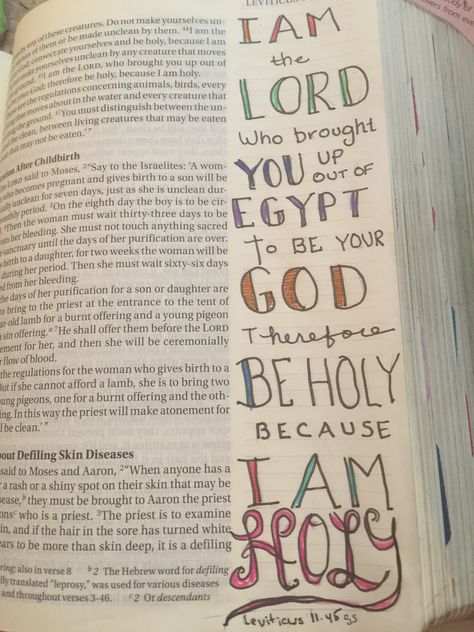 LEVITICUS
any of these creatures. Do not make yourselves un-
of them or be made unclean by them. 44I am the
God; consecrate yourselves and be holy, because I am
make yourselves unclean by any creature that moves
ground. 45I am the LORD, who brought you up out of
your God; therefore be holy, because I am holy.
are the regulations concerning animals, birds, every
that moves about in the water and every creature that
the ground. 47You must distinguish between the un-
the clean, between living creatures that may be eaten
that may not be eaten.'"
After Childbirth
LORD said to Moses, 2"Say to the Israelites: 'A wom-
becomes pregnant and gives birth to a son will be
unclean for seven days, just as she is unclean dur-
monthly period. 3On the eighth day the boy is to be cir-
4Then the woman must wait thirty-three days to be
from her bleeding. She must not touch anything sacred
sanctuary until the days of her purification are over.
birth to a daughter, for two weeks the woman will be
during her period. Then she must wait sixty-six days
from her bleeding.
the days of her purification for a son or daughter are
to bring to the priest at the entrance to the tent of
lamb for a burnt offering and a young pigeon
sin offering.a 7He shall offer them before the LORD
for her, and then she will be ceremonially
flow of blood.
the regulations for the woman who gives birth to a
But if she cannot afford a lamb, she is to bring two
young pigeons, one for a burnt offering and the oth-
In this way the priest will make atonement for
be clean.'"
About Defiling Skin Diseases
said to Moses and Aaron, 2"When anyone has a
a rash or a shiny spot on their skin that may be
b they must be brought to Aaron the priest
c who is a priest. 3The priest is to examine
and if the hair in the sore has turned white
to be more than skin deep, it is a defiling
also in verse 8 b2 The Hebrew word for defiling
translated "leprosy," was used for various diseases
and throughout verses 3-46. c2 Or descendants
I AM
the
LORD
Who brought
YOU UP OUT OF
EGYPT
to BE YOUR
GOD
Therefore
BE HOLY
BECAUSE
I AM
HOLY
Leviticus 11:45